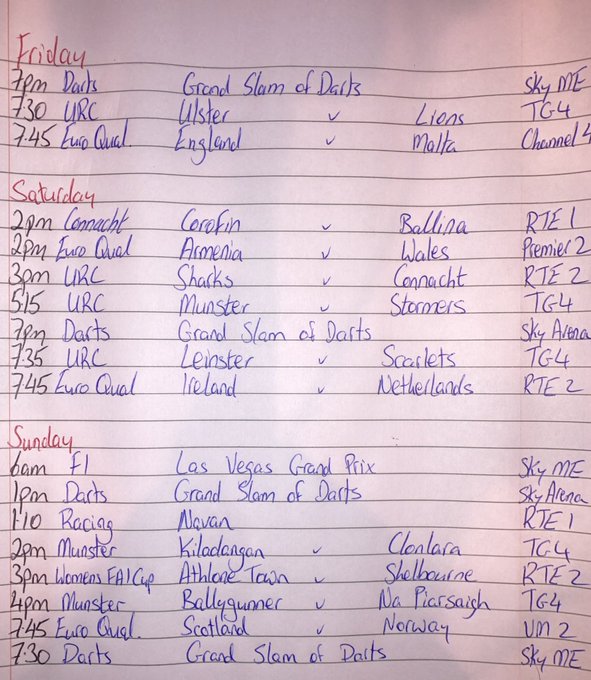 Friday
7pm Darts Grand Slam of Darts Sky ME
7.30 URC Ulster v Lions TG4
7.45 Euro Qual. England v Malta Channel 4
Saturday
2pm Connacht Corofin v Ballina RTE 1
2pm Euro Qual Armenia v Wales Premier 2
3pm URC Sharks v Connacht RTE 2
5.15 URC Munster v Stormers TG4
7pm Darts Grand Slam of Darts Sky Arena
7.35 URC Leinster v Scarlets TG4
7.45 Euro Qual Ireland v Netherlands RTE 2
Sunday
6am F1 Las Vegas Grand Prix Sky ME
1pm Darts Grand Slam of Darts Sky Arena
1.10 Racing Navan RTE 1
2pm Munster Kiladangan v Clonlara TG4
3pm Womens FAI Cup Athlone Town v Shelbourne RTE 2
4pm Munster Ballygunner v Na Piarsaigh TG4
7.45 Euro Qual. Scotland v Norway VM 2
7.30 Darts Grand Slam of Darts Sky ME